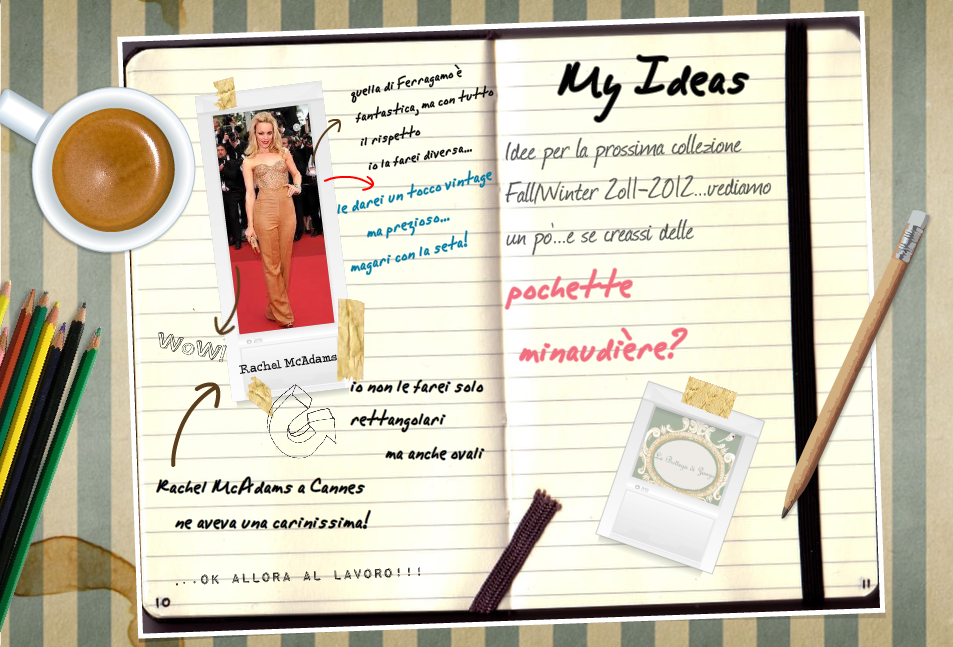 quella di Ferragamo è
fantastica, ma con tutto
il rispetto
io la farei diversa...
le darei un tocco vintage
ma prezioso...
magari con la seta!
WOW!
Rachel McAdams
io non le farei solo
rettangolari
ma anche ovali
Rachel McAdams a Cannes
ne aveva una carinissima!
...OK ALLORA AL LAVORO!!!
10
My Ideas
Idee per la prossima collezione
Fall/Winter 2011-2012...vediamo
un pò...e se creassi delle
pochette
minaudière?
La Bottega di
11